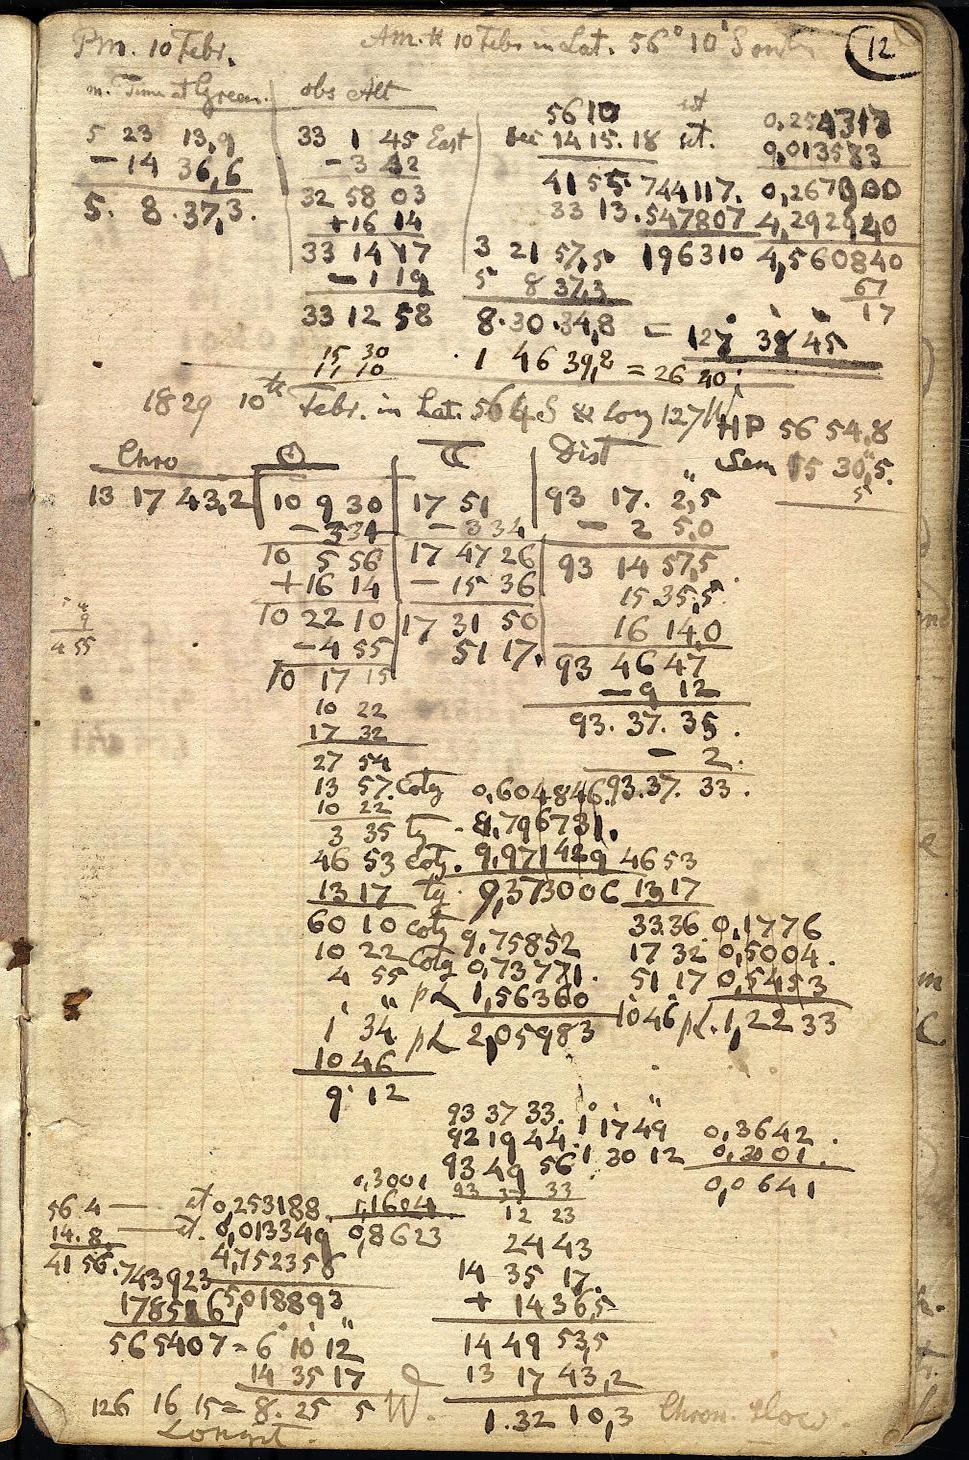 Pm. 10 Febr.
Am. 10 Febr in Lat. 56° 10' South
12
m. Time at Green.
obs Alt
5 23 13,9
- 14 36,6
5. 8. 37,3.
33 1 45 East
- 3 42
32 58 03
+ 16 14
33 14 17
- 1 19
33 12 58
56 10 st
14 15. 18 st.
41 55 744117.
33 13. 547807
196310
3 21 57,5
5 8 37,3
8. 30. 34,8 = 127° 38' 45"
1 46 39,2 = 26 40'
0,013583
0,267900
4,292940
4,560840
67
17
15 30
11 10
1829 10th Febr. in Lat. 56 4 S & Long 127 W
HP 56 54,8
Sem 15 30,5.
5
Chro
☉
☾
Dist
13 17 43,2
10 9 30
- 3 34
10 5 56
+ 16 14
10 22 10
- 4 55
10 17 15
17 51
- 3 34
17 47 26
- 15 36
17 31 50
51 17.
93 17. 2,5
- 2 5,0
93 14 57,5
15 35,5
16 14,0
93 46 47
- 9 12
93. 37. 35.
- 2.
93. 37. 33.
9
4 55
10 22
17 32
27 54
13 57. Cotg 0,604846.
10 22
3 35 tg - 8,796731.
46 53 cotg. 9,971429 46 53
13 17 tg. 9,373006 13 17
60 10 cotg 9,75852 33 36 0,1776
10 22 Cotg 0,73771. 17 32 0,5004.
4 55 pL 1,56360 51 17 0,5453
1' 34" pL 2,05983 10 46 pL. 1,2233
10 46
9' 12
93 37 33. 1° 17' 49" 0,3642.
92 19 44. 1 30 12 0,3001.
93 49 56 0,0641
93 37 33
12 23
24 43
14 35 17.
+ 14 36,5
14 49 53,5
13 17 43,2
1. 32 10,3 Chron. Slow.
0,3001
1,1604
0,8623
56 4 — st 0,253188
14. 8. — st. 0,013349
41 56. 743923 4,752356
178516 5,018893
565407 = 6° 10' 12"
14 35 17
126 16 15 = 8. 25 5 W.
Longit.